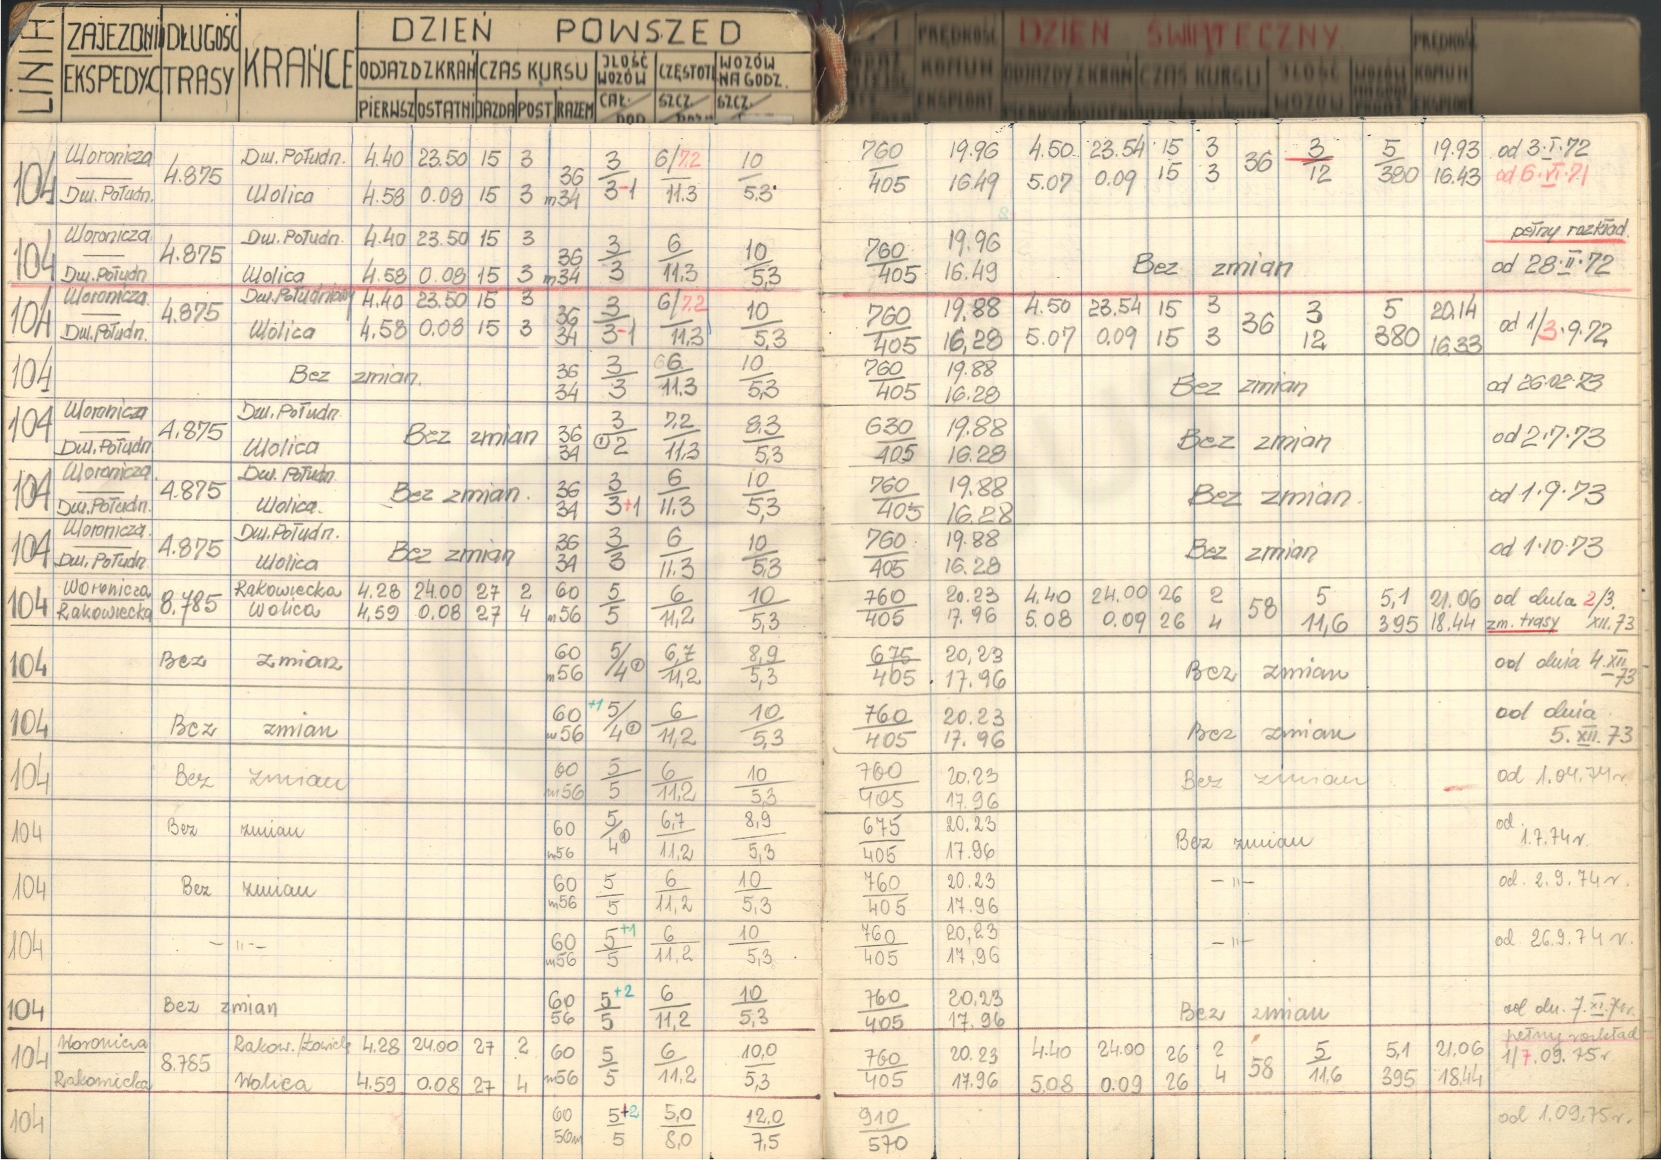 LINIA ZAJEZDNI DŁUGOŚĆ KRAŃCE DZIEŃ POWSZED PRĘDKOŚĆ DZIEŃ ŚWIĄTECZNY PRĘDKOŚĆ
EKSPEDYC TRASY ODJAZD Z KRAŃ CZAS KURSU ILOŚĆ WOZÓW CZĘSTOTL WOZÓW NA GODZ. KOMUN ODJAZDY Z KRAŃ CZAS KURSU ILOŚĆ WOZÓW KOMUN
PIERWSZ OSTATNI JAZDA POST RAZEM CAŁ. SZCZ. SZCZ. EKSPLOAT EKSPLOAT
104 Woronicza 4.875 Dw. Połudn. 4.40 23.50 15 3 36 3 6/7.2 10 760 19.96 4.50 23.54 15 3 36 3 5 19.93 od 3.I.72
Dw. Połudn. Wolica 4.58 0.08 15 3 m34 3-1 11.3 5.3 405 16.49 5.07 0.09 15 3 12 380 16.43 od 6.VI.71
pełny rozkład
104 Woronicza 4.875 Dw. Połudn. 4.40 23.50 15 3 36 3 6 10 760 19.96 Bez zmian od 28.II.72
Dw. Połudn Wolica 4.58 0.08 15 3 m34 3 11,3 5,3 405 16.49
104 Woronicza 4.875 Dw. Południowy 4.40 23.50 15 3 36 3 6/7.2 10 760 19.88 4.50 23.54 15 3 36 3 5 20.14 od 1/3.9.72
Dw. Połudn. Wolica 4.58 0.08 15 3 34 3-1 11,3 5,3 405 16,28 5.07 0.09 15 3 12 380 16.33
104 Bez zmian. 36 3 6 10 760 19.88 Bez zmian od 26.02.73
34 3 11.3 5,3 405 16.28
104 Woronicza 4.875 Dw. Połudn. Bez zmian 36 3 7.2 8,3 630 19.88 Bez zmian od 2.7.73
Dw. Połudn. Wolica 34 ① 2 11.3 5,3 405 16.28
104 Woronicza 4.875 Dw. Połudn Bez zmian. 36 3 6 10 760 19.88 Bez zmian. od 1.9.73
Dw. Połudn. Wolica. 34 3+1 11.3 5,3 405 16.28
104 Woronicza 4.875 Dw. Połudn. Bez zmian 36 3 6 10 760 19.88 Bez zmian od 1.10.73
Dw. Połudn. Wolica 34 3 11.3 5,3 405 16.28
104 Woronicza 8.785 Rakowiecka 4.28 24.00 27 2 60 5 6 10 760 20.23 4.40 24.00 26 2 58 5 5,1 21.06 od dnia 2/3.
Rakowiecka Wolica 4.59 0.08 27 4 m56 5 11,2 5,3 405 17.96 5.08 0.09 26 4 11,6 395 18.44 zm. trasy XII.73
104 Bez zmian 60 5/4① 6,7 8,9 675 20,23 Bez zmian od dnia 4.XII
m56 11,2 5,3 405 17.96 73
104 Bez zmian 60 +1 5/4① 6 10 760 20.23 Bez zmian od dnia
m56 11,2 5,3 405 17.96 5.XII.73
104 Bez zmian 60 5 6 10 760 20.23 Bez zmian od 1.04.74r
m56 5 11,2 5,3 405 17.96
104 Bez zmian 60 5/4① 6,7 8,9 675 20.23 Bez zmian od
m56 11,2 5,3 405 17.96 1.7.74r.
104 Bez zmian 60 5 6 10 760 20.23 -"- od. 2.9.74r.
m56 5 11,2 5,3 405 17.96
104 -"- 60 5+1 6 10 760 20,23 -"- od 26.9.74r.
m56 5 11,2 5,3 405 17,96
104 Bez zmian 60 5+2 6 10 760 20,23 Bez zmian od dn. 7.XI.74r.
56 5 11,2 5,3 405 17.96
pełny rozkład
104 Woronicza 8.785 Rakow./Łowick 4.28 24.00 27 2 60 5 6 10,0 760 20.23 4.40 24.00 26 2 58 5 5,1 21,06 1/7.09.75r.
Rakowiecka Wolica 4.59 0.08 27 4 m56 5 11,2 5,3 405 17.96 5,08 0.09 26 4 11,6 395 18.44
104 60 5+2 5,0 12,0 910 od 1.09.75r.
50m 5 8,0 7,5 570